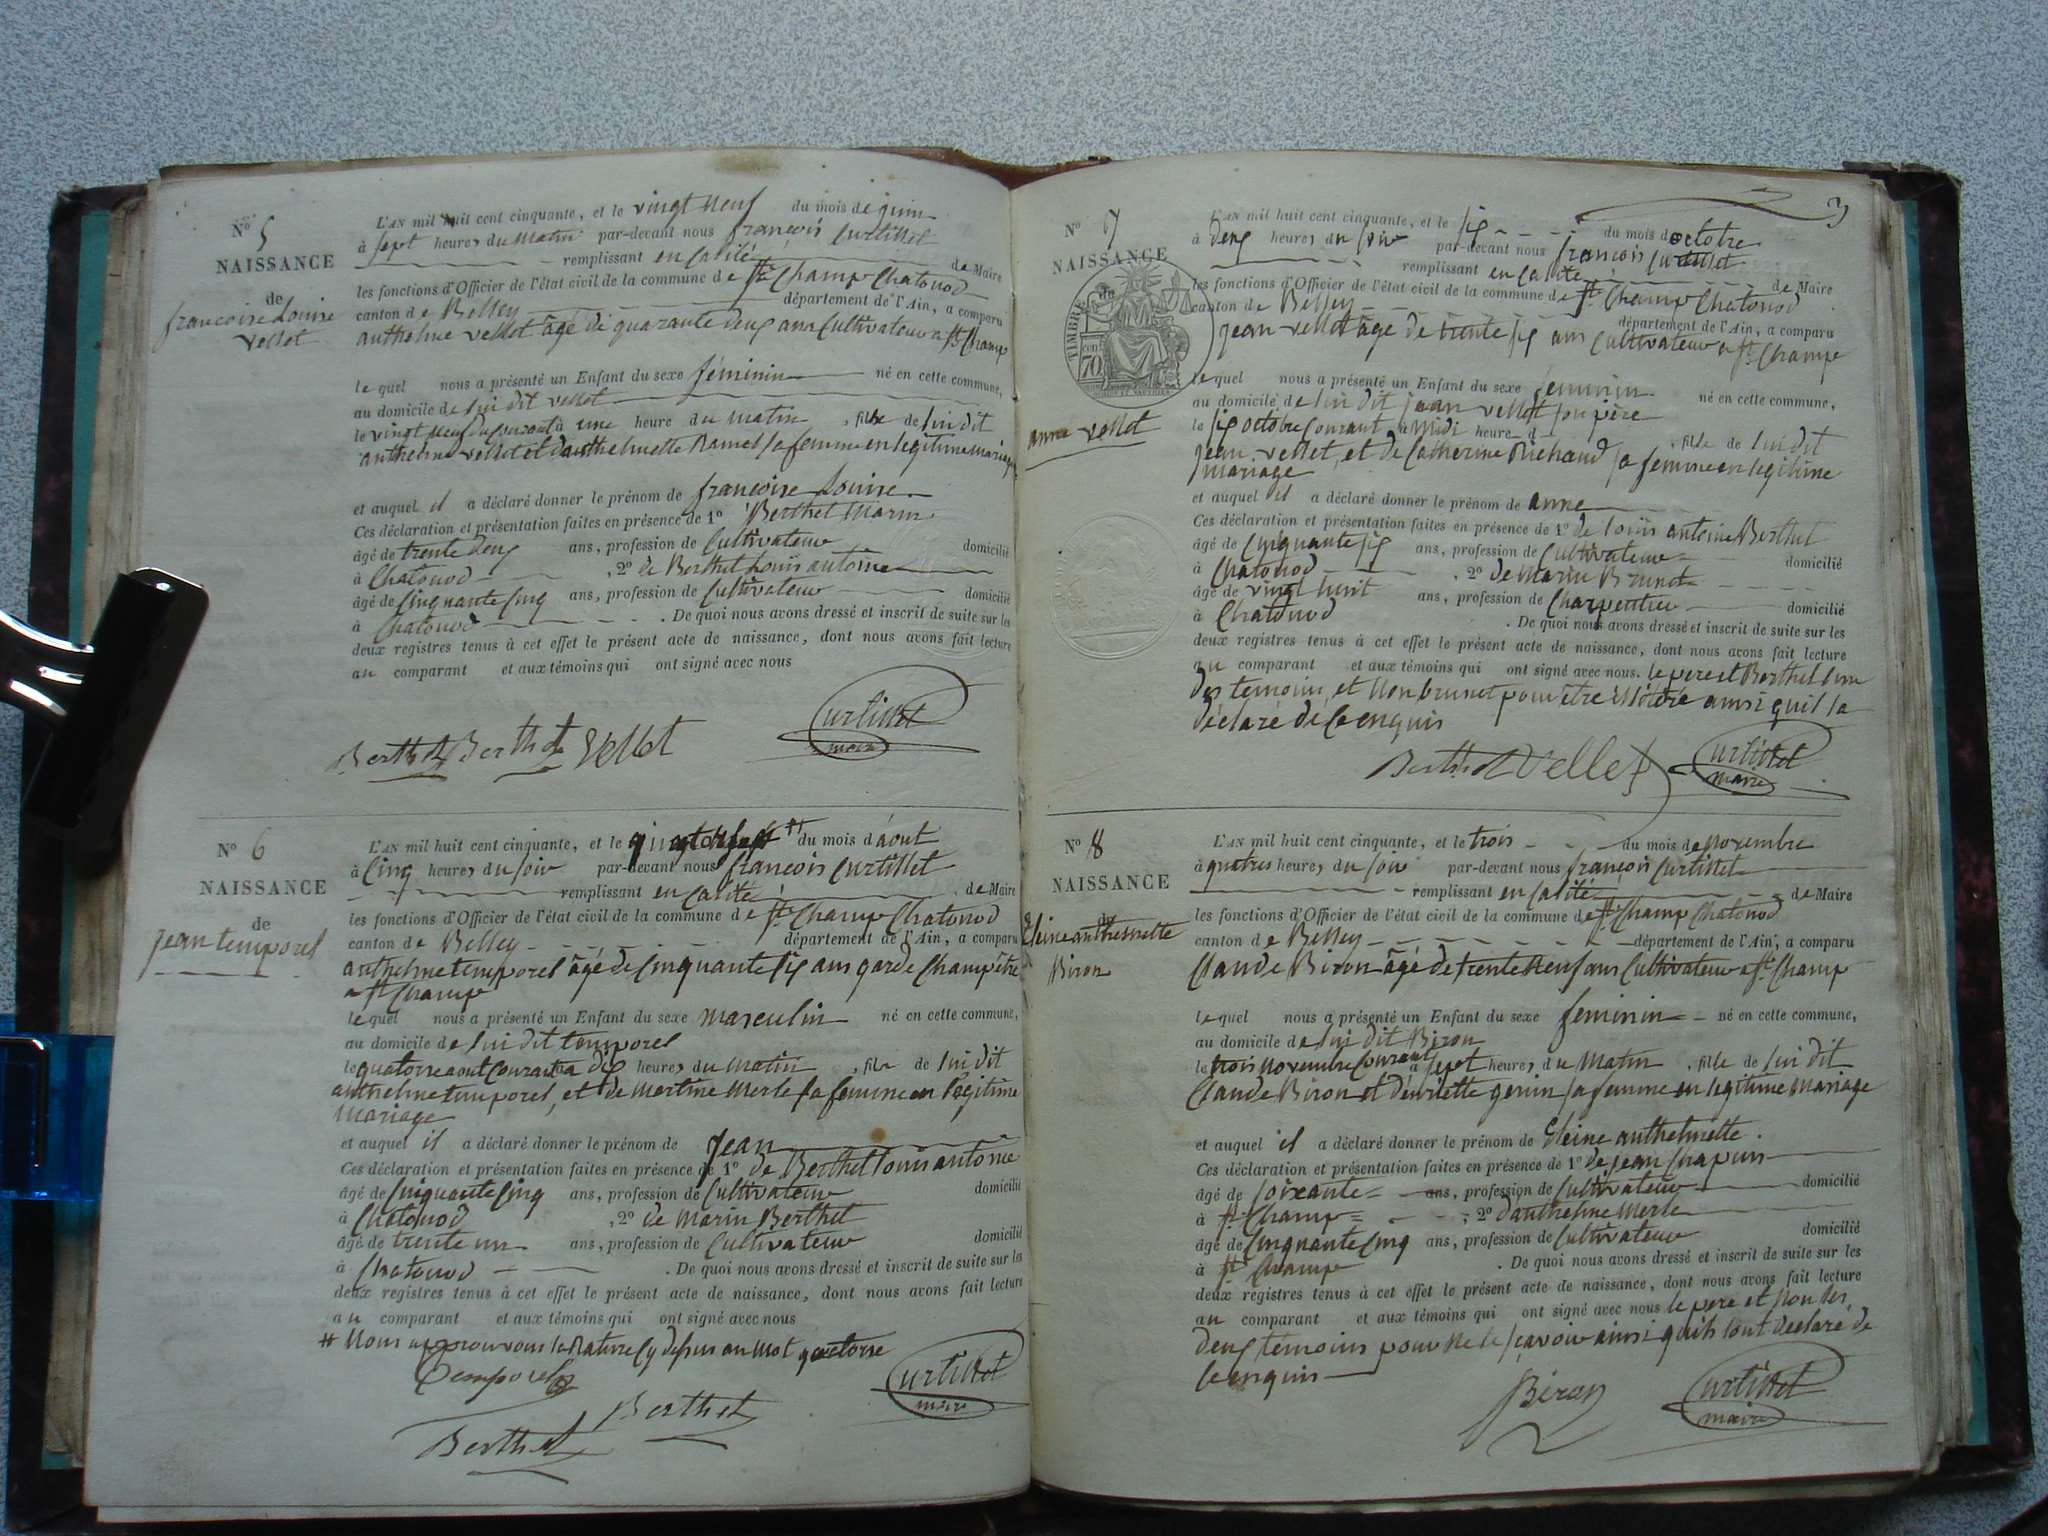 N° 5
NAISSANCE
de
françoise Louise
vellet
L'AN mil huit cent cinquante, et le vingt neuf du mois de juin
à sept heures du matin par-devant nous françois Curtillet
remplissant en calité de Maire
les fonctions d'Officier de l'état civil de la commune de St Champ Chatonod
canton de Belley département de l'Ain, a comparu
anthelme vellet âgé de quarante deux ans Cultivateur a St Champ
lequel nous a présenté un Enfant du sexe féminin né en cette commune,
au domicile de lui dit vellet
le vingt neuf du courant à une heure du matin, fille de lui dit
anthelme vellet et danthelmette Ramel sa femme en legitime mariage
et auquel il a déclaré donner le prénom de françoise Louise
Ces déclaration et présentation faites en présence de 1° Berthet Marin
âgé de trente deux ans, profession de Cultivateur domicilié
à Chatonod, 2° de Berthet Louis antoine
âgé de Cinquante Cinq ans, profession de Cultivateur domicilié
à Chatonod. De quoi nous avons dressé et inscrit de suite sur les
deux registres tenus à cet effet le présent acte de naissance, dont nous avons fait lecture
au comparant et aux témoins qui ont signé avec nous
Berthet Berthet Vellet Curtillet
maire
N° 6
NAISSANCE
de
jean temporel
L'AN mil huit cent cinquante, et le # du mois d'aout
à Cinq heures du soir par-devant nous françois Curtillet
remplissant en calité de Maire
les fonctions d'Officier de l'état civil de la commune de St Champ Chatonod
canton de Belley département de l'Ain, a comparu
anthelme temporel âgé de Cinquante six ans garde Champêtre
a St Champ
lequel nous a présenté un Enfant du sexe masculin né en cette commune,
au domicile de lui dit temporel
le quatorze aout courant à dix heures du matin, fils de lui dit
anthelme temporel, et de martine Merle sa femme en legitime
mariage
et auquel il a déclaré donner le prénom de Jean
Ces déclaration et présentation faites en présence de 1° de Berthet Louis antoine
âgé de Cinquante Cinq ans, profession de Cultivateur domicilié
à Chatonod, 2° de Marin Berthet
âgé de trente un ans, profession de Cultivateur domicilié
à Chatonod. De quoi nous avons dressé et inscrit de suite sur les
deux registres tenus à cet effet le présent acte de naissance, dont nous avons fait lecture
au comparant et aux témoins qui ont signé avec nous
# Nous approuvons la Rature Cy dessus au mot quatorse
Temporel Curtillet
maire
Berthet Berthet
3
N° 7
NAISSANCE
de
TIMBRE
cent 70
anne vellet
L'AN mil huit cent cinquante, et le six du mois doctobre
à deux heures du soir par-devant nous françois Curtillet
remplissant en calité de Maire
les fonctions d'Officier de l'état civil de la commune de St Champ Chatonod
canton de Belley département de l'Ain, a comparu
jean vellet âgé de trente six ans Cultivateur a St Champ
lequel nous a présenté un Enfant du sexe feminin né en cette commune,
au domicile de lui dit jean vellet son père
le six octobre Courant à midi heure d, fille de lui dit
jean vellet, et de Catherine Richaud sa femme en legitime
mariage
et auquel il a déclaré donner le prénom de anne
Ces déclaration et présentation faites en présence de 1° de Louis antoine Berthet
âgé de Cinquante six ans, profession de Cultivateur domicilié
à Chatonod, 2° de Marin Brunet
âgé de vingt huit ans, profession de Charpentier domicilié
à Chatonod. De quoi nous avons dressé et inscrit de suite sur les
deux registres tenus à cet effet le présent acte de naissance, dont nous avons fait lecture
au comparant et aux témoins qui ont signé avec nous. le pere et Berthet l'un
des temoins, et Non brunet pour être illitéré ainsi quil la
déclaré de Ce enquis
Berthet Vellet Curtillet
maire
N° 8
NAISSANCE
de
anthelmette
Biron
L'AN mil huit cent cinquante, et le trois du mois de Novembre
à quatres heures du soir par-devant nous françois Curtillet
remplissant en calité de Maire
les fonctions d'Officier de l'état civil de la commune de St Champ Chatonod
canton de Belley département de l'Ain, a comparu
Claude Biron âgé de trente Neuf ans Cultivateur a St Champ
lequel nous a présenté un Enfant du sexe feminin né en cette commune,
au domicile de lui dit Biron
le trois Novembre Courant à sept heures du Matin, fille de lui dit
Claude Biron et d'enriette genin sa femme en legitime Mariage
et auquel il a déclaré donner le prénom de anthelmette.
Ces déclaration et présentation faites en présence de 1° de jean Chapuis
âgé de soixante ans, profession de Cultivateur domicilié
à St Champ; 2° danthelme Merle
âgé de Cinquante Cinq ans, profession de Cultivateur domicilié
à St Champ. De quoi nous avons dressé et inscrit de suite sur les
deux registres tenus à cet effet le présent acte de naissance, dont nous avons fait lecture
au comparant et aux témoins qui ont signé avec nous le pere et Non les
deux témoins pour Ne le sçavoir ainsi quils lont declaré de
Ce enquis
Biron Curtillet
maire